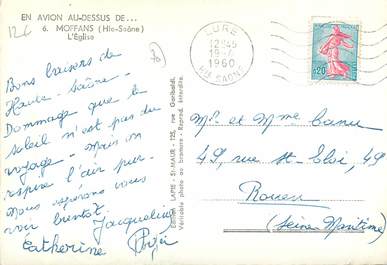 EN AVION AU-DESSUS DE...
6. MOFFANS (Hte-Saône)
L'Église
126
Bons baisers de
Haute-Saône.
Dommage que le
soleil n'est pas du
voyage - mais on
respire l'air pur.
Nous espérons vous
voir bientôt.
Jacqueline
Catherine
Edition LAPIE - St-MAUR - 125, rue Garibaldi.
Véritable photo au bromure - Reprod. interdite.
LURE
12H45
19-7
1960
Hte SAONE
0,20
Mr et Mme Canu
49, rue St-Eloi, 49
Rouen
(Seine Maritime)